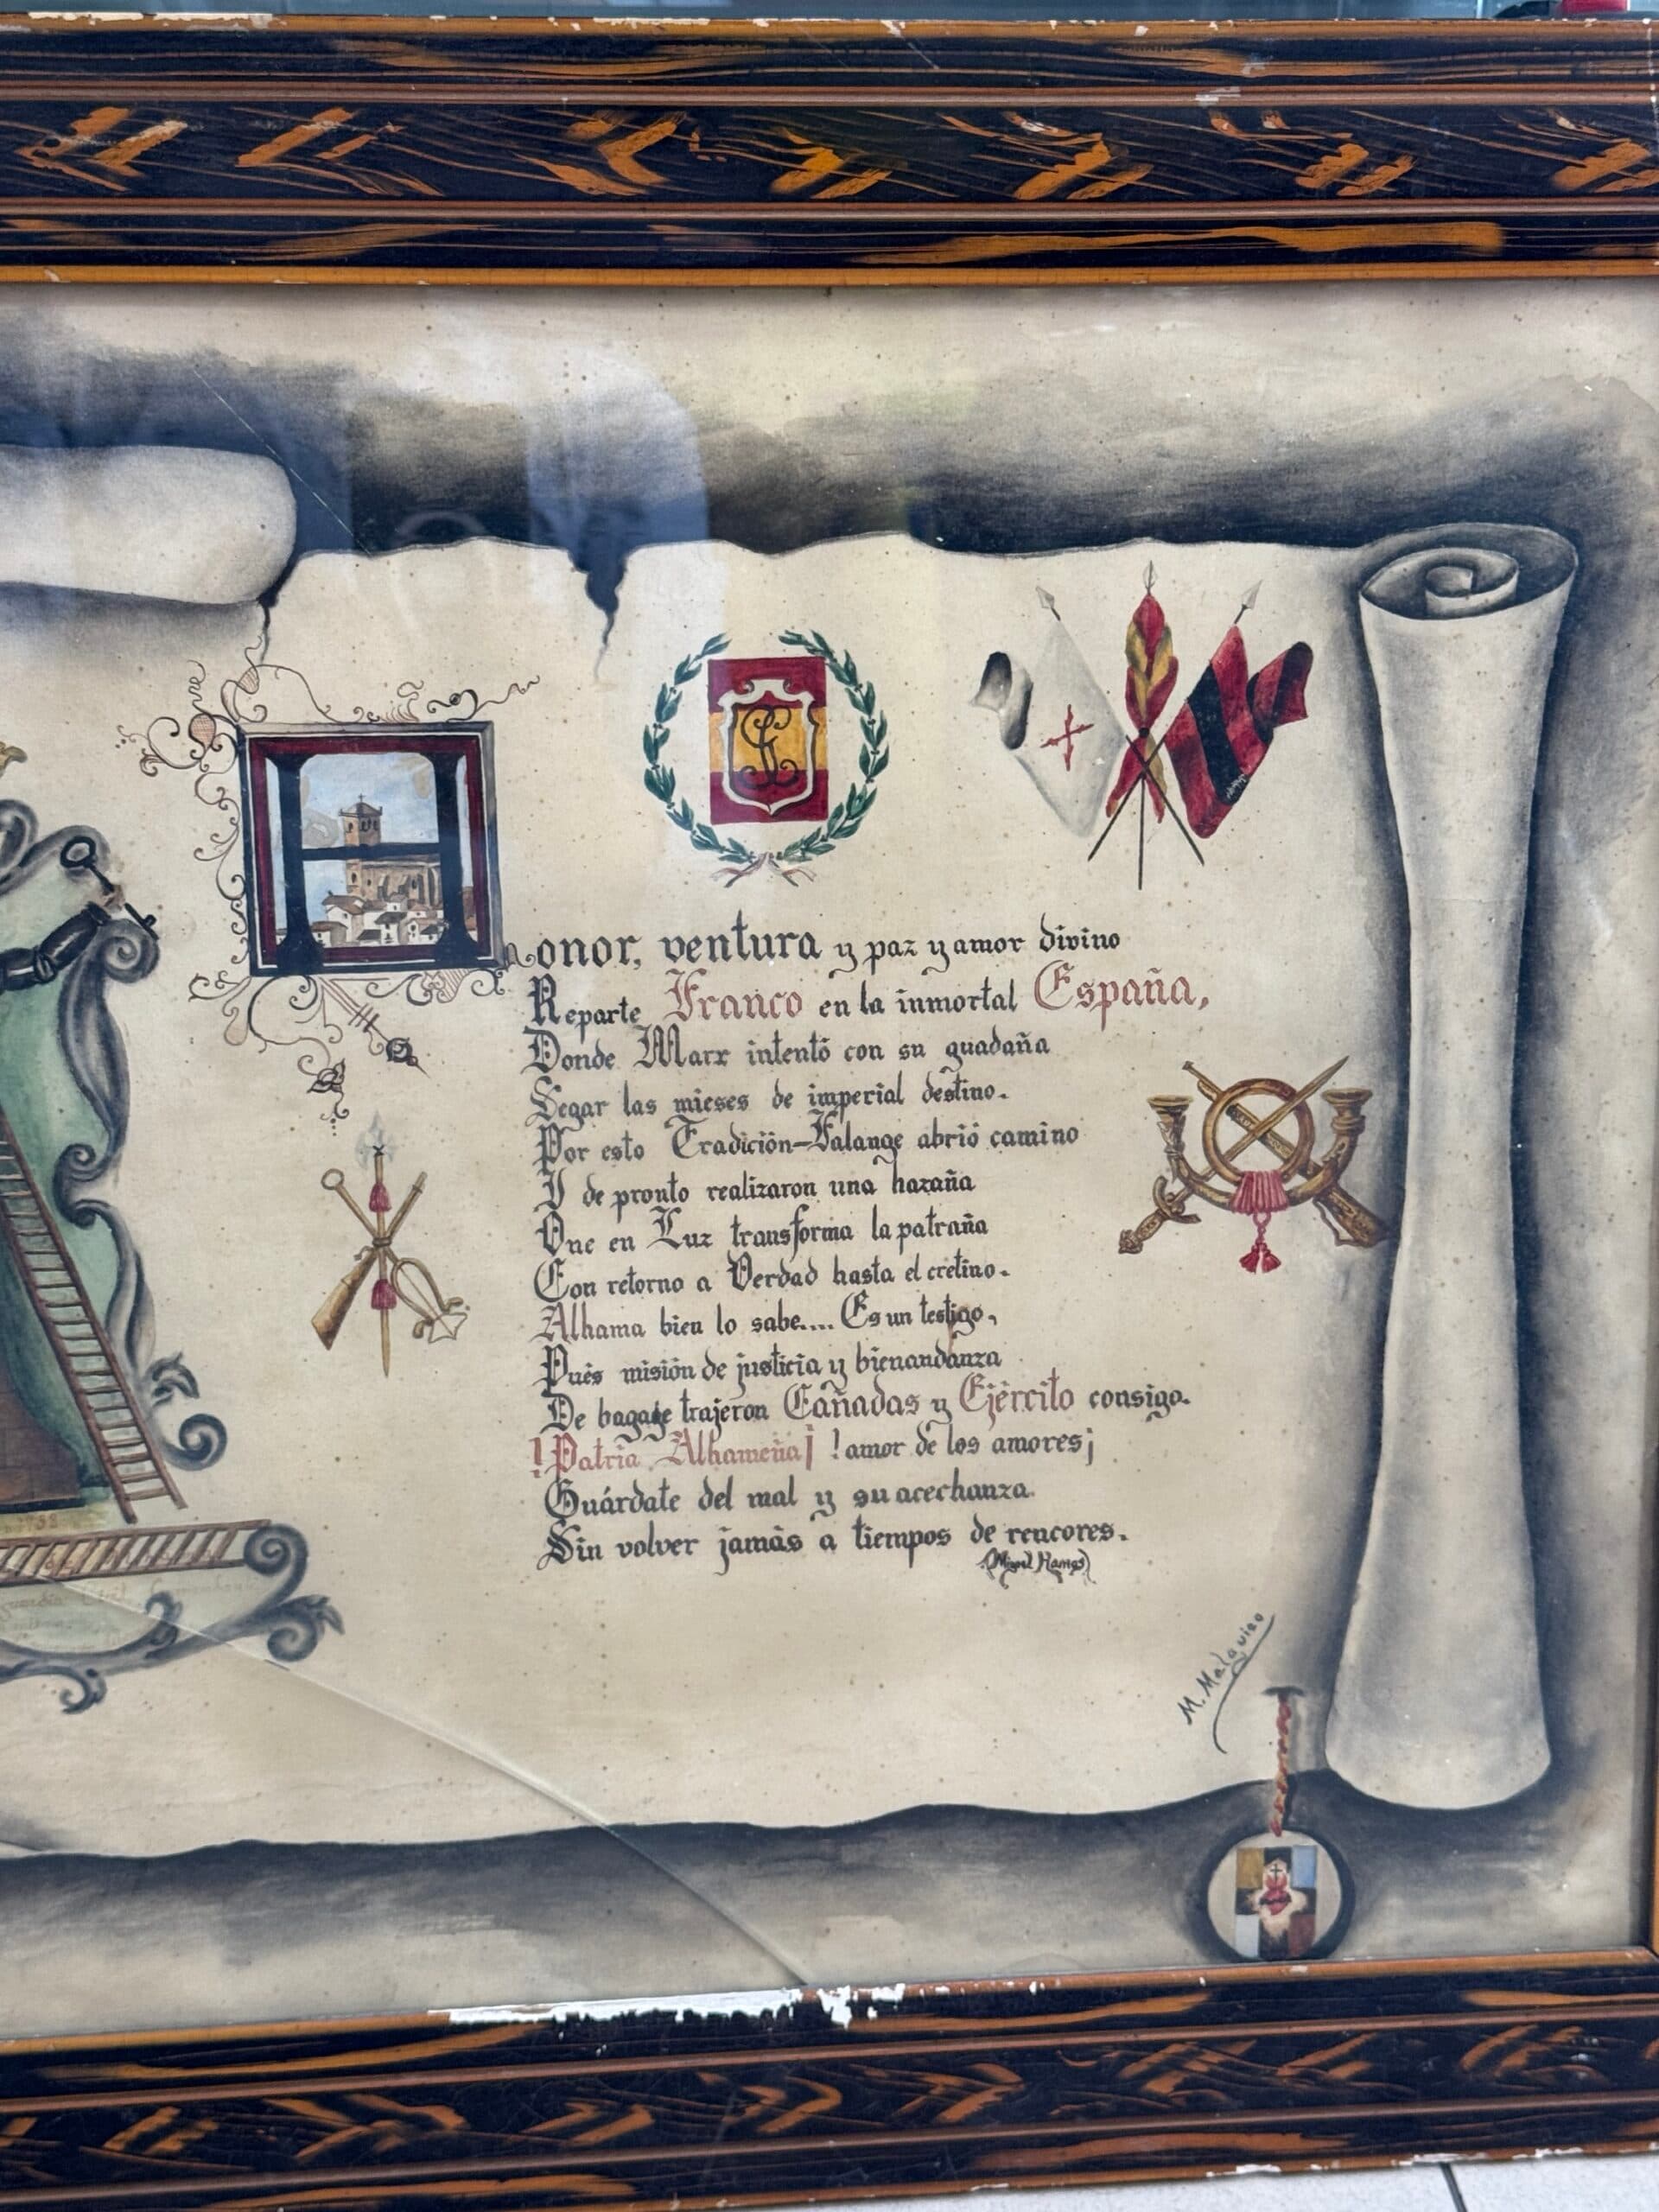 Honor, ventura y paz y amor divino
Reparte Franco en la inmortal España,
Donde Marx intentó con su guadaña
Segar las mieses de imperial destino.
Por esto Tradición-Falange abrió camino
Y de pronto realizaron una hazaña
Que en Luz transforma la patraña
Con retorno a Verdad hasta el cretino.
Alhama bien lo sabe.... Es un testigo,
Pués misión de justicia y bienandanza
De bagage trajeron Cañadas y Ejército consigo.
!Patria Alhameña¡ !amor de los amores¡
Guárdate del mal y su acechanza.
Sin volver jamás a tiempos de rencores.
(Miguel Ramos)
M. Malaguiso